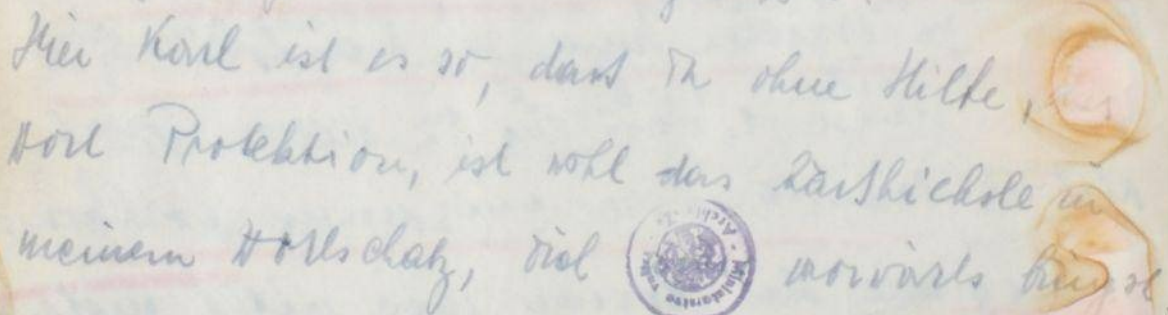 Hier Karl ist es so, dass Du ohne Hilfe,
Wort Protektion, ist wohl das Zärtlichste in
meinem Wortschatz, vorwärts bringst